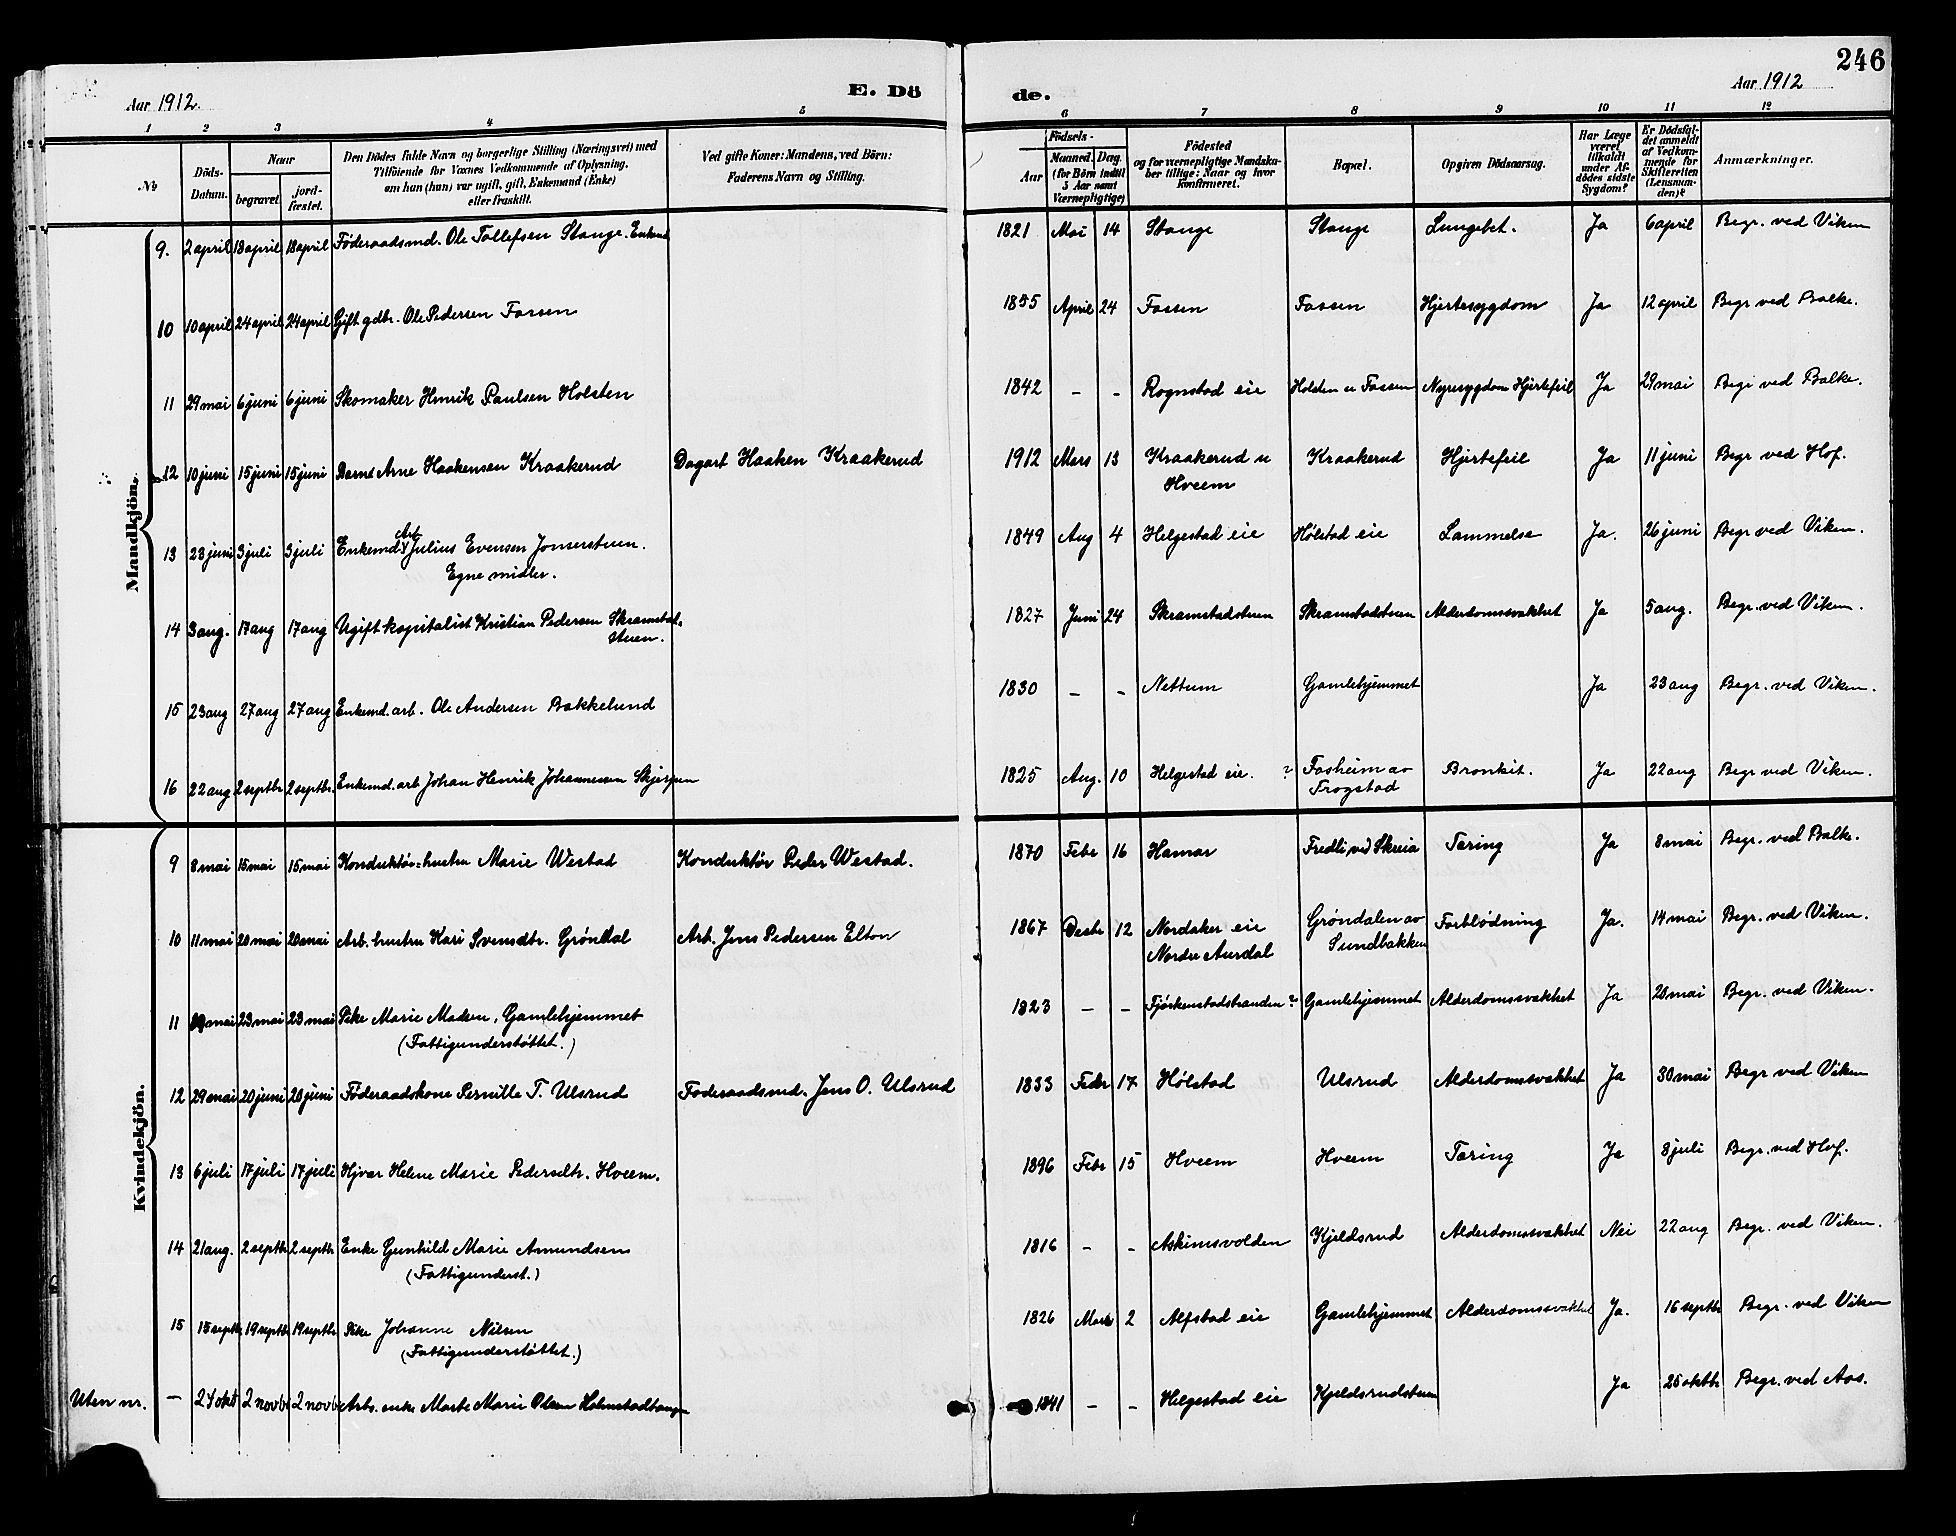 246
Aar 1912.
E. Dö
de.
Aar 1912
1 2 3 4 5 6 7 8 9 10 11 12
No
Döds-
Datum.
Naar
begravet
jord-
fæstet.
Den Dödes fulde Navn og borgerlige Stilling (Næringsvei) med
Tilföiende for Voxnes Vedkommende af Oplysning,
om hun (han) var ugift, gift, Enkemand (Enke)
eller fraskilt.
Ved gifte Koner: Mandens, ved Börn:
Faderens Navn og Stilling.
Födsels-
Aar
Maaned.
Dag.
(for Börn indtil
5 Aar samt
Værnepligtige)
Födested
og for værnepligtige Mandska-
ber tillige: Naar og hvor
konfirmeret.
Bopæl.
Opgiven Dödsaarsag.
Har Læge
været
tilkaldt
under Af-
dödes sidste
Sygdom?
Er Dödsfal-
det anmeldt
af Vedkom-
mende for
Skifteretten
(Lensman-
den)?
Anmærkninger.
Mandkjön.
9. 2 april 18 april 18 april Föderaadsmd. Ole Tollefsen Stange. Enkemd 1821 Mai 14 Stange Stange Lungebet. Ja 6 april Begr. ved Viken
10 10 april 24 april 24 april Gift gdbr. Ole Pedersen Fossen 1855 April 24 Fossen Fossen Hjertesygdom Ja 12 april Begr ved Balke.
11 29 mai 6 juni 6 juni Skomaker Henrik Paulsen Holsten 1842 - - Rognstad eie Holsten u Fossen Nyresygdom Hjertefeil Ja 29 mai Begr ved Balke.
12 10 juni 15 juni 15 juni Barnet Arne Haakensen Kraakerud Dagarb Haaken Kraakerud 1912 Mars 13 Kraakerud u Kraakerud Hjertefeil Ja 11 juni Begr ved Hof.
Hveem
13 23 juni 3 juli 3 juli Enkemd Arb Julius Evensen Jonserstuen. 1849 Aug 4 Helgestad eie Hölstad eie Lammelse Ja. 26 juni Begr ved Viken.
Egne midler.
14 3 aug. 17 aug 17 aug Ugift kapitalist Kristian Pedersen Skramstad- 1827 Juni 24 Skramstadstuen Skramstadstuen Alderdomssvakhet Ja 5 aug. Begr. ved Viken.
stuen.
15 23 aug 27 aug 27 aug Enkemd. arb. Ole Andersen Bakkelund 1830 - - Nettum Gamlehjemmet Ja 23 aug Begr. ved Viken.
16 22 aug 2 septbr 2 septbr. Enkemd. arb Johan Henrik Johannessen 1825 Aug. 10 Helgestad eie. ? Fosheim av Bronkit. Ja 22 aug Begr ved Viken.
Frogstad
Kvindekjön.
9 8 mai 15 mai 15 mai Konduktör-hustru Marie Westad Konduktör Peder Westad. 1870 Febr 16 Hamar Fredli ved Skreia Tæring Ja 8 mai Begr. ved Balke.
10 11 mai 20 mai 20 mai Arb. hustru Kari Svensdtr. Gröndal Arb. Jens Pedersen Elton 1867 Desbr 12 Nordaker eie Gröndalen av Forblödning Ja. 14 mai Begr. ved Viken.
Nordre Aurdal Sundbakken
11 mai 23 mai 23 mai Pike Marie Madsen, Gamlehjemmet 1823 - - ? Gamlehjemmet Alderdomssvakhet Ja 20 mai Begr. ved Viken.
(Fattigunderstöttet.)
12 29 mai 20 juni 20 juni Föderaadskone Pernille T. Ulsrud Föderaadsmd. Jens O. Ulsrud 1833 Febr 17 Hölstad Ulsrud Alderdomssvakhet Ja 30 mai Begr ved Viken
13 6 juli 17 juli 17 juli Hjvær Helene Marie Pedersdtr. Hveem. 1896 Febr 15 Hveem Hveem Tæring Ja 8 juli Begr. ved Hof.
14 21 aug. 2 septbr 2 septbr Enke Gunhild Marie Amundsen 1816 - - Askimsvolden Kjeldsrud Alderdomssvakhet Nei 22 aug Begr. ved Viken.
(Fattigunderst.)
15 15 septbr 19 septbr 19 septbr Pike Johanne Nilsen 1826 Mars 2 Alfstad eie Gamlehjemmet Alderdomssvakhet Ja. 16 septbr Begr. ved Viken
(Fattigunderstöttet.)
Uten nr. - 24 okt 2 novbr 2 novbr Arb. enke Marte Marie Olsen Holmstadtangen 1841 - - Helgestad eie Kjeldsrudstuen Ja 25 oktbr Begr. ved Aas.